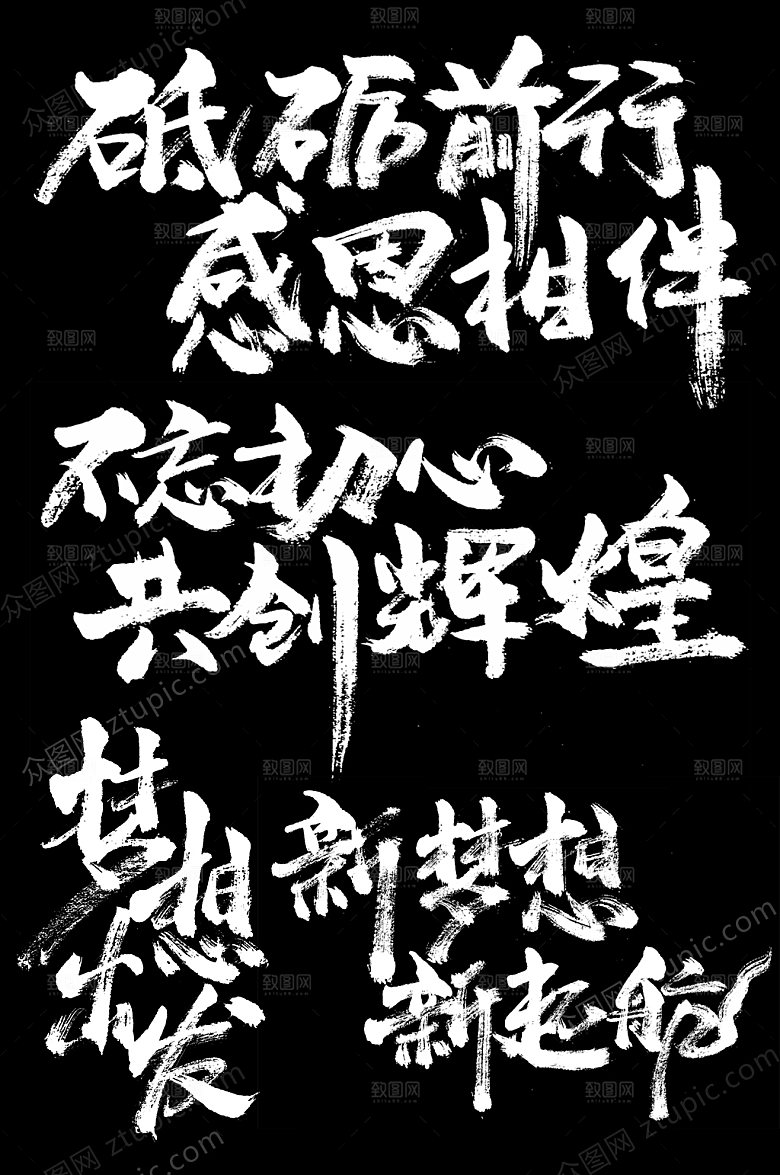 砥砺前行
感恩相伴
不忘初心
共创辉煌
梦想
出发
新梦想
新起航
致图网
众图网 ztupic.com